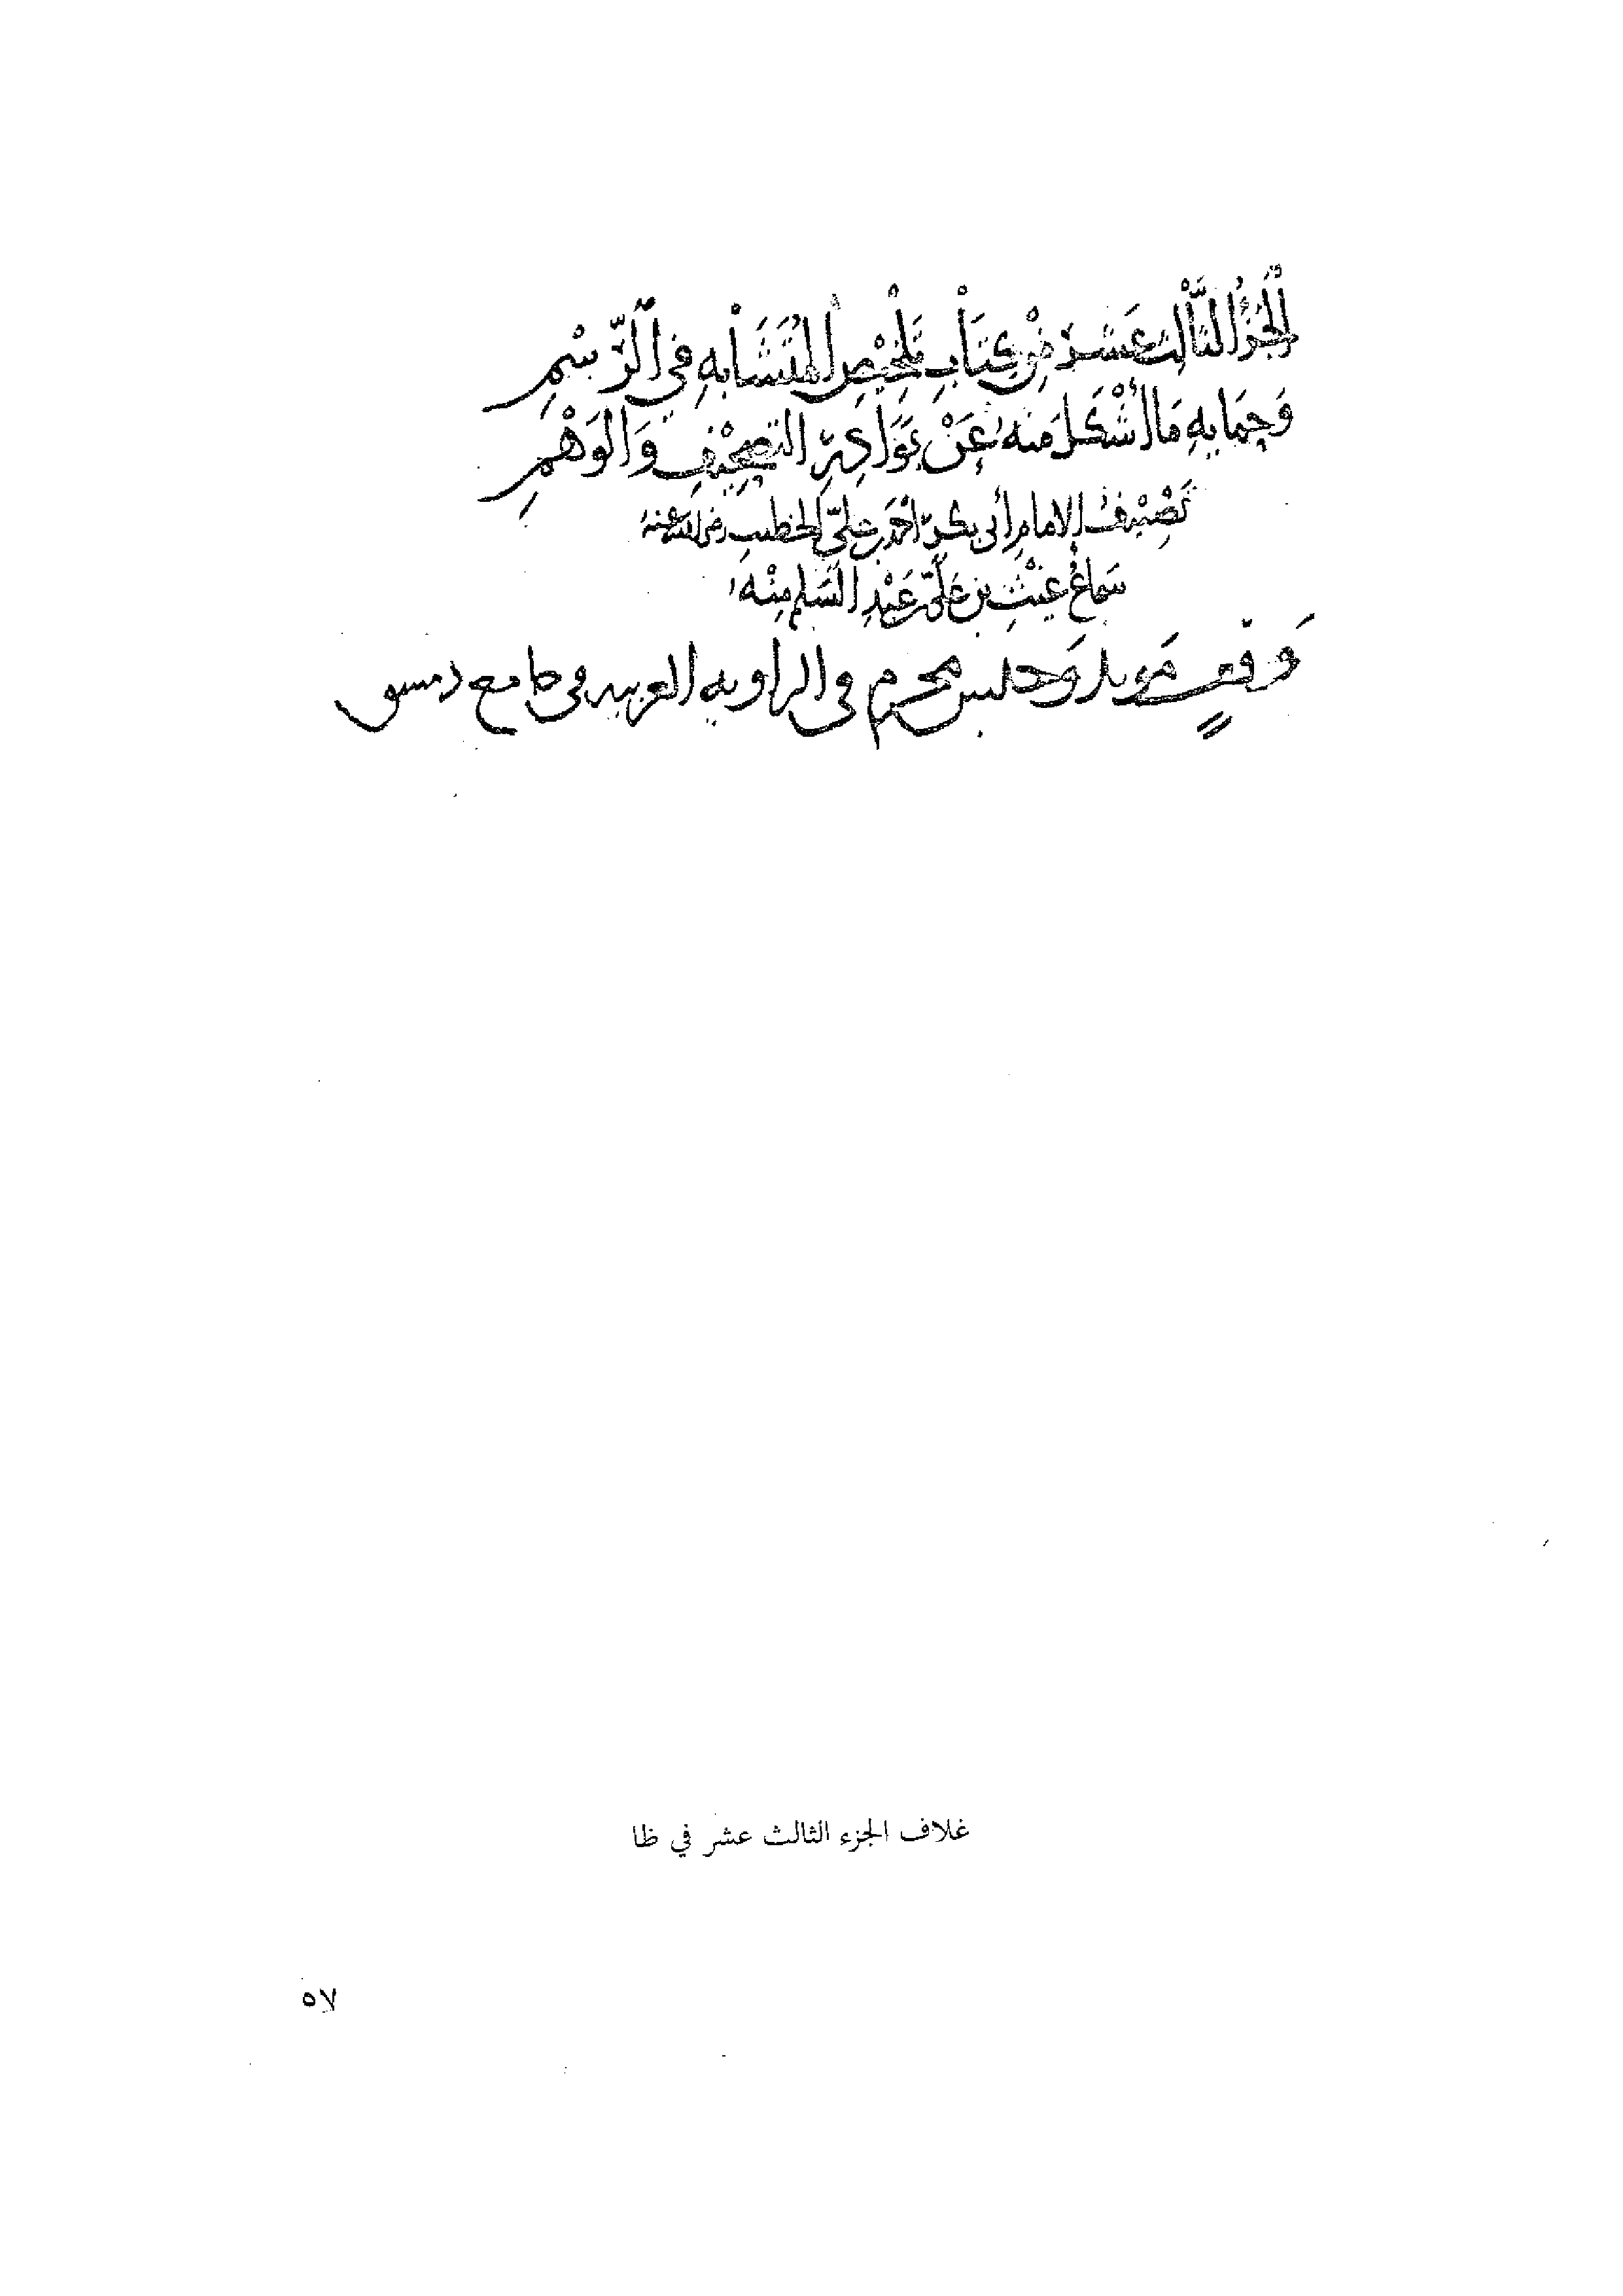 الجُزْءُ الثَّالِثَ عَشَرَ مِنْ كِتَابِ تَلْخِيْصِ المُتَشَابِهِ فِي الرَّسْمِ
وَحِمَايَةِ مَا أَشْكَلَ مِنْهُ عَنْ بَوَادِرِ التَّصْحِيْفِ وَالوَهْمِ
تَصْنِيْفُ الإمامِ أبي بكرٍ أحْمَدَ بن عليّ الخطيبِ رضي الله عنهُ
سَمَاعُ غَيْثِ بنِ عَلِيّ بن عَبْدِ السَّلم مِنْهُ
وَقف مؤبد وَحبيس محرم في الزاوية الغربية في جامع دمشق
غلاف الجزء الثالث عشر في ظا
٥٧